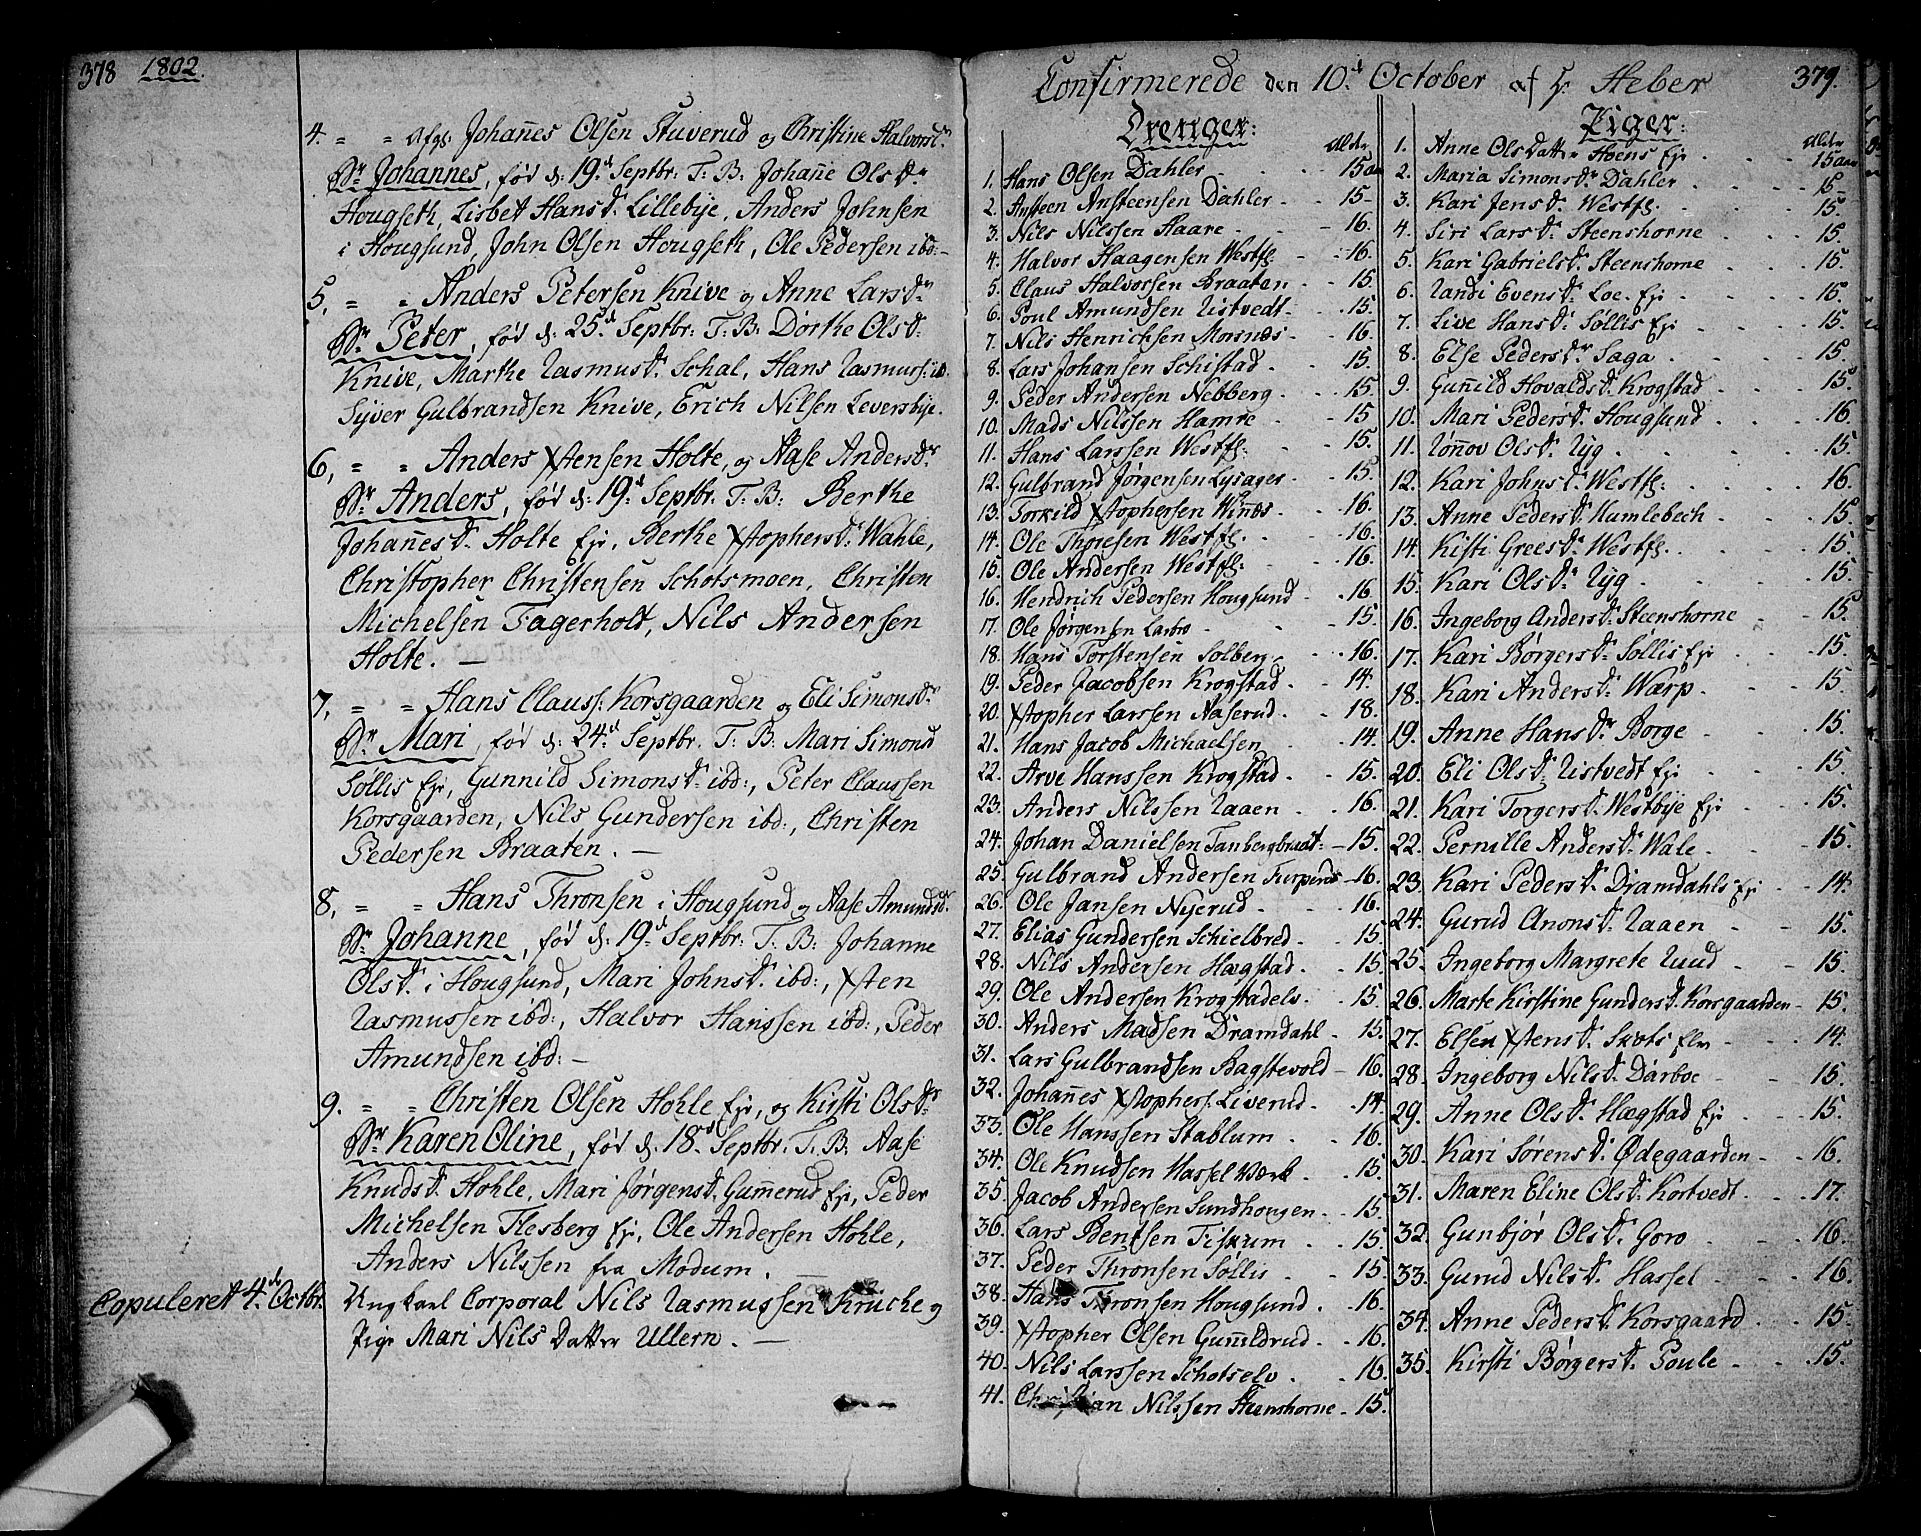 378 1802.
4. " " Afgl. Johan̄es Olsen Stuverud og Christine Halvorsdr
Br Johannes, fød d: 19d Septbr: T: B: Johan̄e Olsdr
Hougseth, Lisbet Hansdr Lillebÿe, Anders Johnsen
i Hougsund, John Olsen Hougseth, Ole Pedersen ibd:-
5, " " Anders Petersen Knive og Anne Larsdr
Br Peter, fød d: 25d Septbr: T: B: Dorthe Olsd:
Knive, Marthe Rasmusd: Schal, Hans Rasmuss: ib.
Syver Gulbrandsen Knive, Erich Nilsen Leversbÿe.
6, " " Anders Xstensen Holte, og Aase Andersdr
Br Anders, fød d: 19d Septbr: T: B: Berthe
Johan̄esd: Holte Eje, Berthe Xstophersd: Wahle,
Christopher Christensen Schotsmoen, Christen
Michelsen Fagerholt, Nils Andersen
Holte. —
7, " " Hans Clauss: Korsgaarden og Eli Simonsdr
Br Mari, fød d: 24d Septbr. T: B: Mari Simonsd
Søllis Eje, Gunnild Simonsd: ibd:, Peter Claussen
Korsgaarden, Nils Gundersen ibd:, Christen
Pedersen Braaten. —
8, " " Hans Thronsen i Hougsund og Aase Amundsdr
Br Johanne, fød d: 19d Septbr: T: B: Johanne
Olsd: i Hougsund, Mari Johnsd: ibd:, Xsten
Rasmussen ibd:, Halvor Hanssen ibd:, Peder
Amundsen ibd: —
9. " " Christen Olsen Hohle Eje, og Kirsti Olsdr
Br Karen Oline, fød d: 18d Septbr: T: B: Aase
Knudsd: Hohle, Mari Jørgensd: Gum̄erud Eje, Peder
Michelsen Flesberg Eje, Ole Andersen Hohle,
Anders Nilssen fra Modum. —
Copuleret 4d Octbr. Ungkarl Corporal Nils Rasmussen Kruche og
Pige Mari Nils Datter Ullern. —
Confirmerede den 10d October af Hr Heber 379.
Drenger:
Alder
1. Hans Olsen Dahler - - 15 aar
2. Ansteen Ansteensen Dahler - - 15 -
3. Nils Nilssen Haare - - 16.
4. Halvor Haagensen Westf: - 16.
5. Claus Halvorsen Braaten - - 15.
6. Poul Amundsen Ristvedt - - 15.
7. Nils Henricksen Morsnæs - - 16.
8. Lars Johansen Schistad - - 15.
9. Peder Andersen Nebberg - - 15.
10. Mads Nilssen Hamre - - 15
11. Hans Larssen Westf: - - 15.
12. Gulbrand Jørgensen Lysager - - 15.
13. Torkild Xstophersen Winæs - - 16.
14. Ole Thoresen Westf: - - 16.
15. Ole Andersen Westf: - - 16.
16. Hendrich Pedersen Hougsund - - 16
17. Ole Jørgensen Larbro - - 15.
18. Hans Torstensen Solberg - - 16.
19. Peder Jacobsen Krogstad - - 14.
20. Xstopher Larssen Aaserud - - 18.
21. Hans Jacob Michaelsen - - 14.
22. Arve Hanssen Krogstad - - 15.
23. Anders Nilssen Raaen - - 16.
24. Johan Danielsen Tanbergbraat: - 15.
25. Gulbrand Andersen Furperud - 16.
26. Ole Jansen Nyerud - - 16.
27. Elias Gundersen Schielbred - - 15.
28. Nils Andersen Hægstad - - 15.
29. Ole Andersen Krogstadelv - - 15
30. Anders Madsen Dramdahl - - 15.
31. Lars Gulbrandsen Bagstevold - 16.
32. Johan̄es Xstophers: Liverud - - 14.
33. Ole Hanssen Stablum - - 16.
34. Ole Knudsen Hassel Værk - - 15.
35. Jacob Andersen Sundhougen - - 15.
36. Lars Bentsen Fiskum - - 15.
37. Peder Thronsen Søllis - - 15.
38. Hans Thronsen Hougsund - - 16.
39. Xstopher Olsen Gum̄ldrud - - 16.
40. Nils Larssen Schotselv - - 16.
41. Christian Nilssen Steenshorne - 15.
Piger:
Alder
1. Anne Ols Datter Hoens Eje - - 15 aar
2. Maria Simonsdr Dahler - - 15 -
3. Kari Jensd: Westf: - - 15.
4. Siri Larsd: Steenshorne - - 15.
5. Kari Gabrielsd: Steenshorne - - 15.
6. Randi Evensd: Loe. Eje - - 15.
7. Live Hansd: Søllis Eje - - 15.
8. Else Pedersdr Saga - - 15.
9. Gun̄ild Hovaldsd: Krogstad - - 15.
10. Mari Pedersd: Hougsund - - 16.
11. Røn̄ov Olsd: Ryg - - 15.
12. Kari Johnsd: Westf: - - 16.
13. Anne Pedersd: Humlebech - - 15.
14. Kisti Greesd: Westf: - - 15.
15. Kari Olsd: Ryg - - 15.
16. Ingeborg Andersd: Steenshorne - - 15.
17. Kari Børgersd: Søllis Eje - - 15.
18. Kari Andersd: Warp - - 15.
19. Anne Hansdr Borge - - 15.
20. Eli Olsd: Ristvedt Eje - - 15.
21. Kari Torgersd: Westbÿe Eje - - 15.
22. Pernille Andersd: Wale - - 15.
23. Kari Pedersd: Dramdahls Eje - - 14.
24. Gurud Anonsd: Raaen - - 15.
25. Ingeborg Margrete Ruud - - 15.
26. Marte Kirstine Gundersd: Korsgaarden - 15.
27. Elsen Xstensd: Skots Elv - - 14.
28. Ingeborg Nilsd: Darboe - - 15.
29. Anne Olsd: Hægstad Eje - - 15.
30. Kari Sørensd: Ødegaarden - - 16.
31. Maren Eline Olsd: Kortvedt - - 17.
32. Gunbjør Olsd: Goro - - 16.
33. Gurud Nilsd: Hassel - - 16.
34. Anne Pedersd: Korsgaard - - 15.
35. Kirsti Børgersd: Poule - - 15.